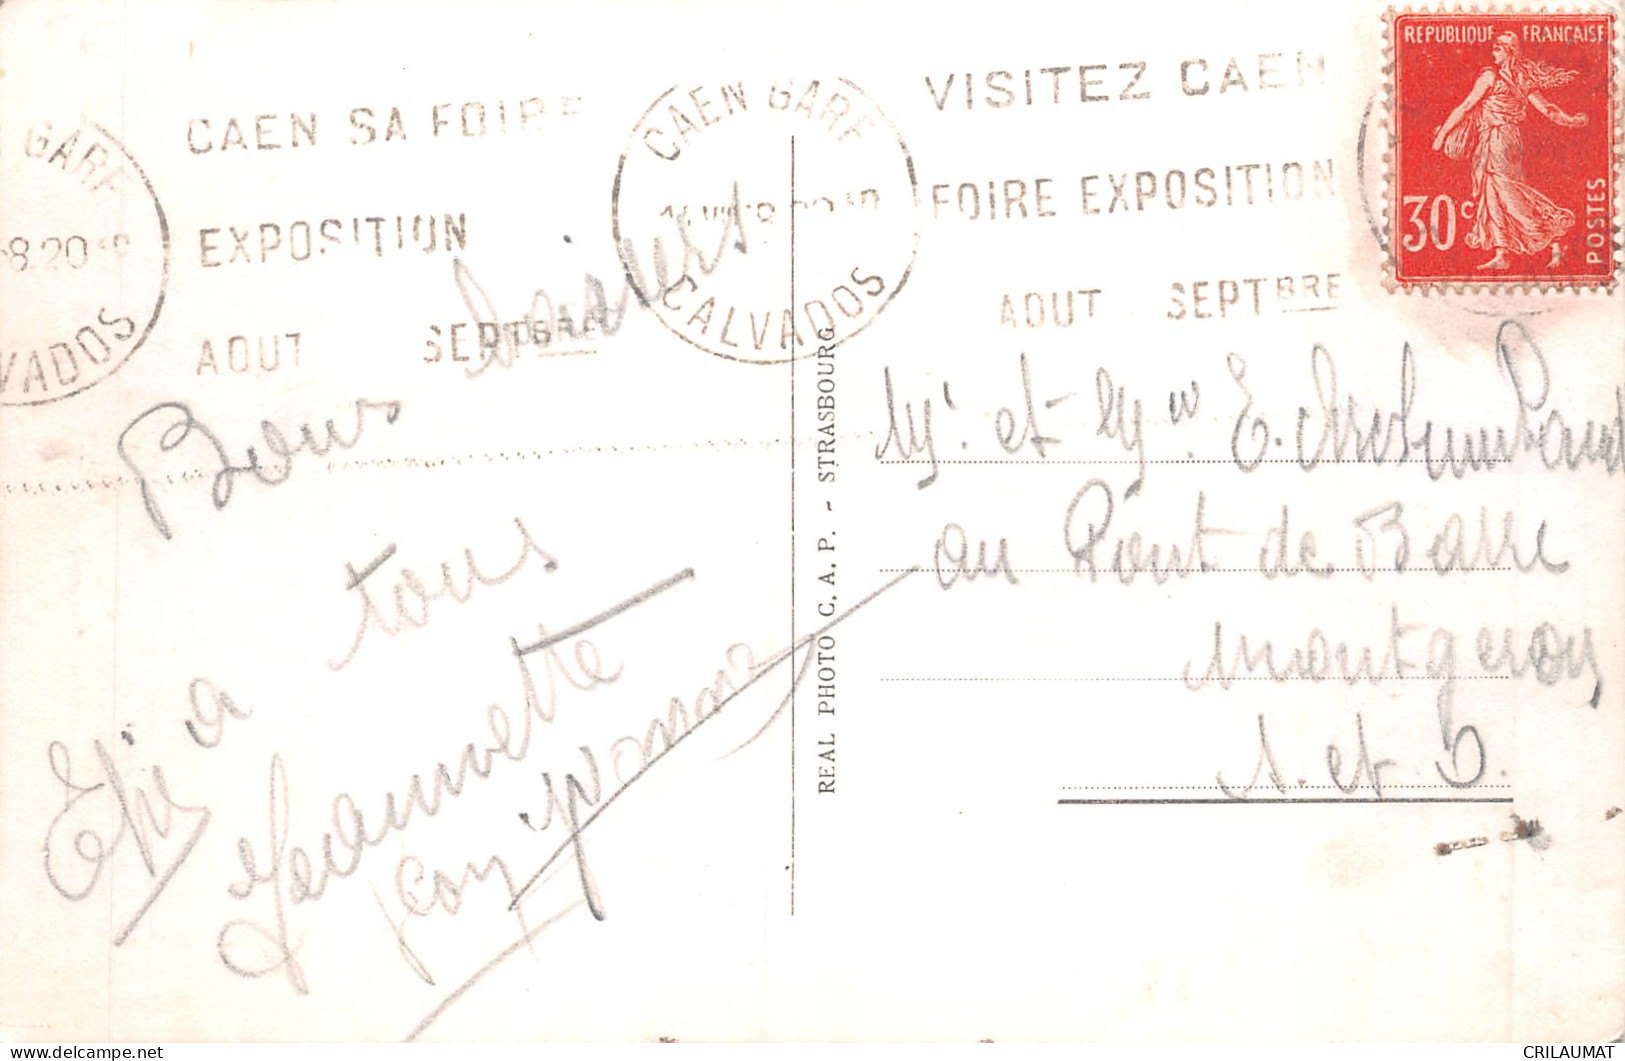 CAEN SA FOIRE
EXPOSITION
AOUT SEPTBRE
GARE
8.20
VADOS
CAEN GARE
CALVADOS
VISITEZ CAEN
FOIRE EXPOSITION
AOUT SEPTBRE
REPUBLIQUE FRANÇAISE
30c
POSTES
Bons baisers
à tous
Jeannette
Yvonne
REAL PHOTO C. A. P. - STRASBOURG
Mr. et Mme E.
au Pont de
Montgeron
S. et O.
CRILAUMAT